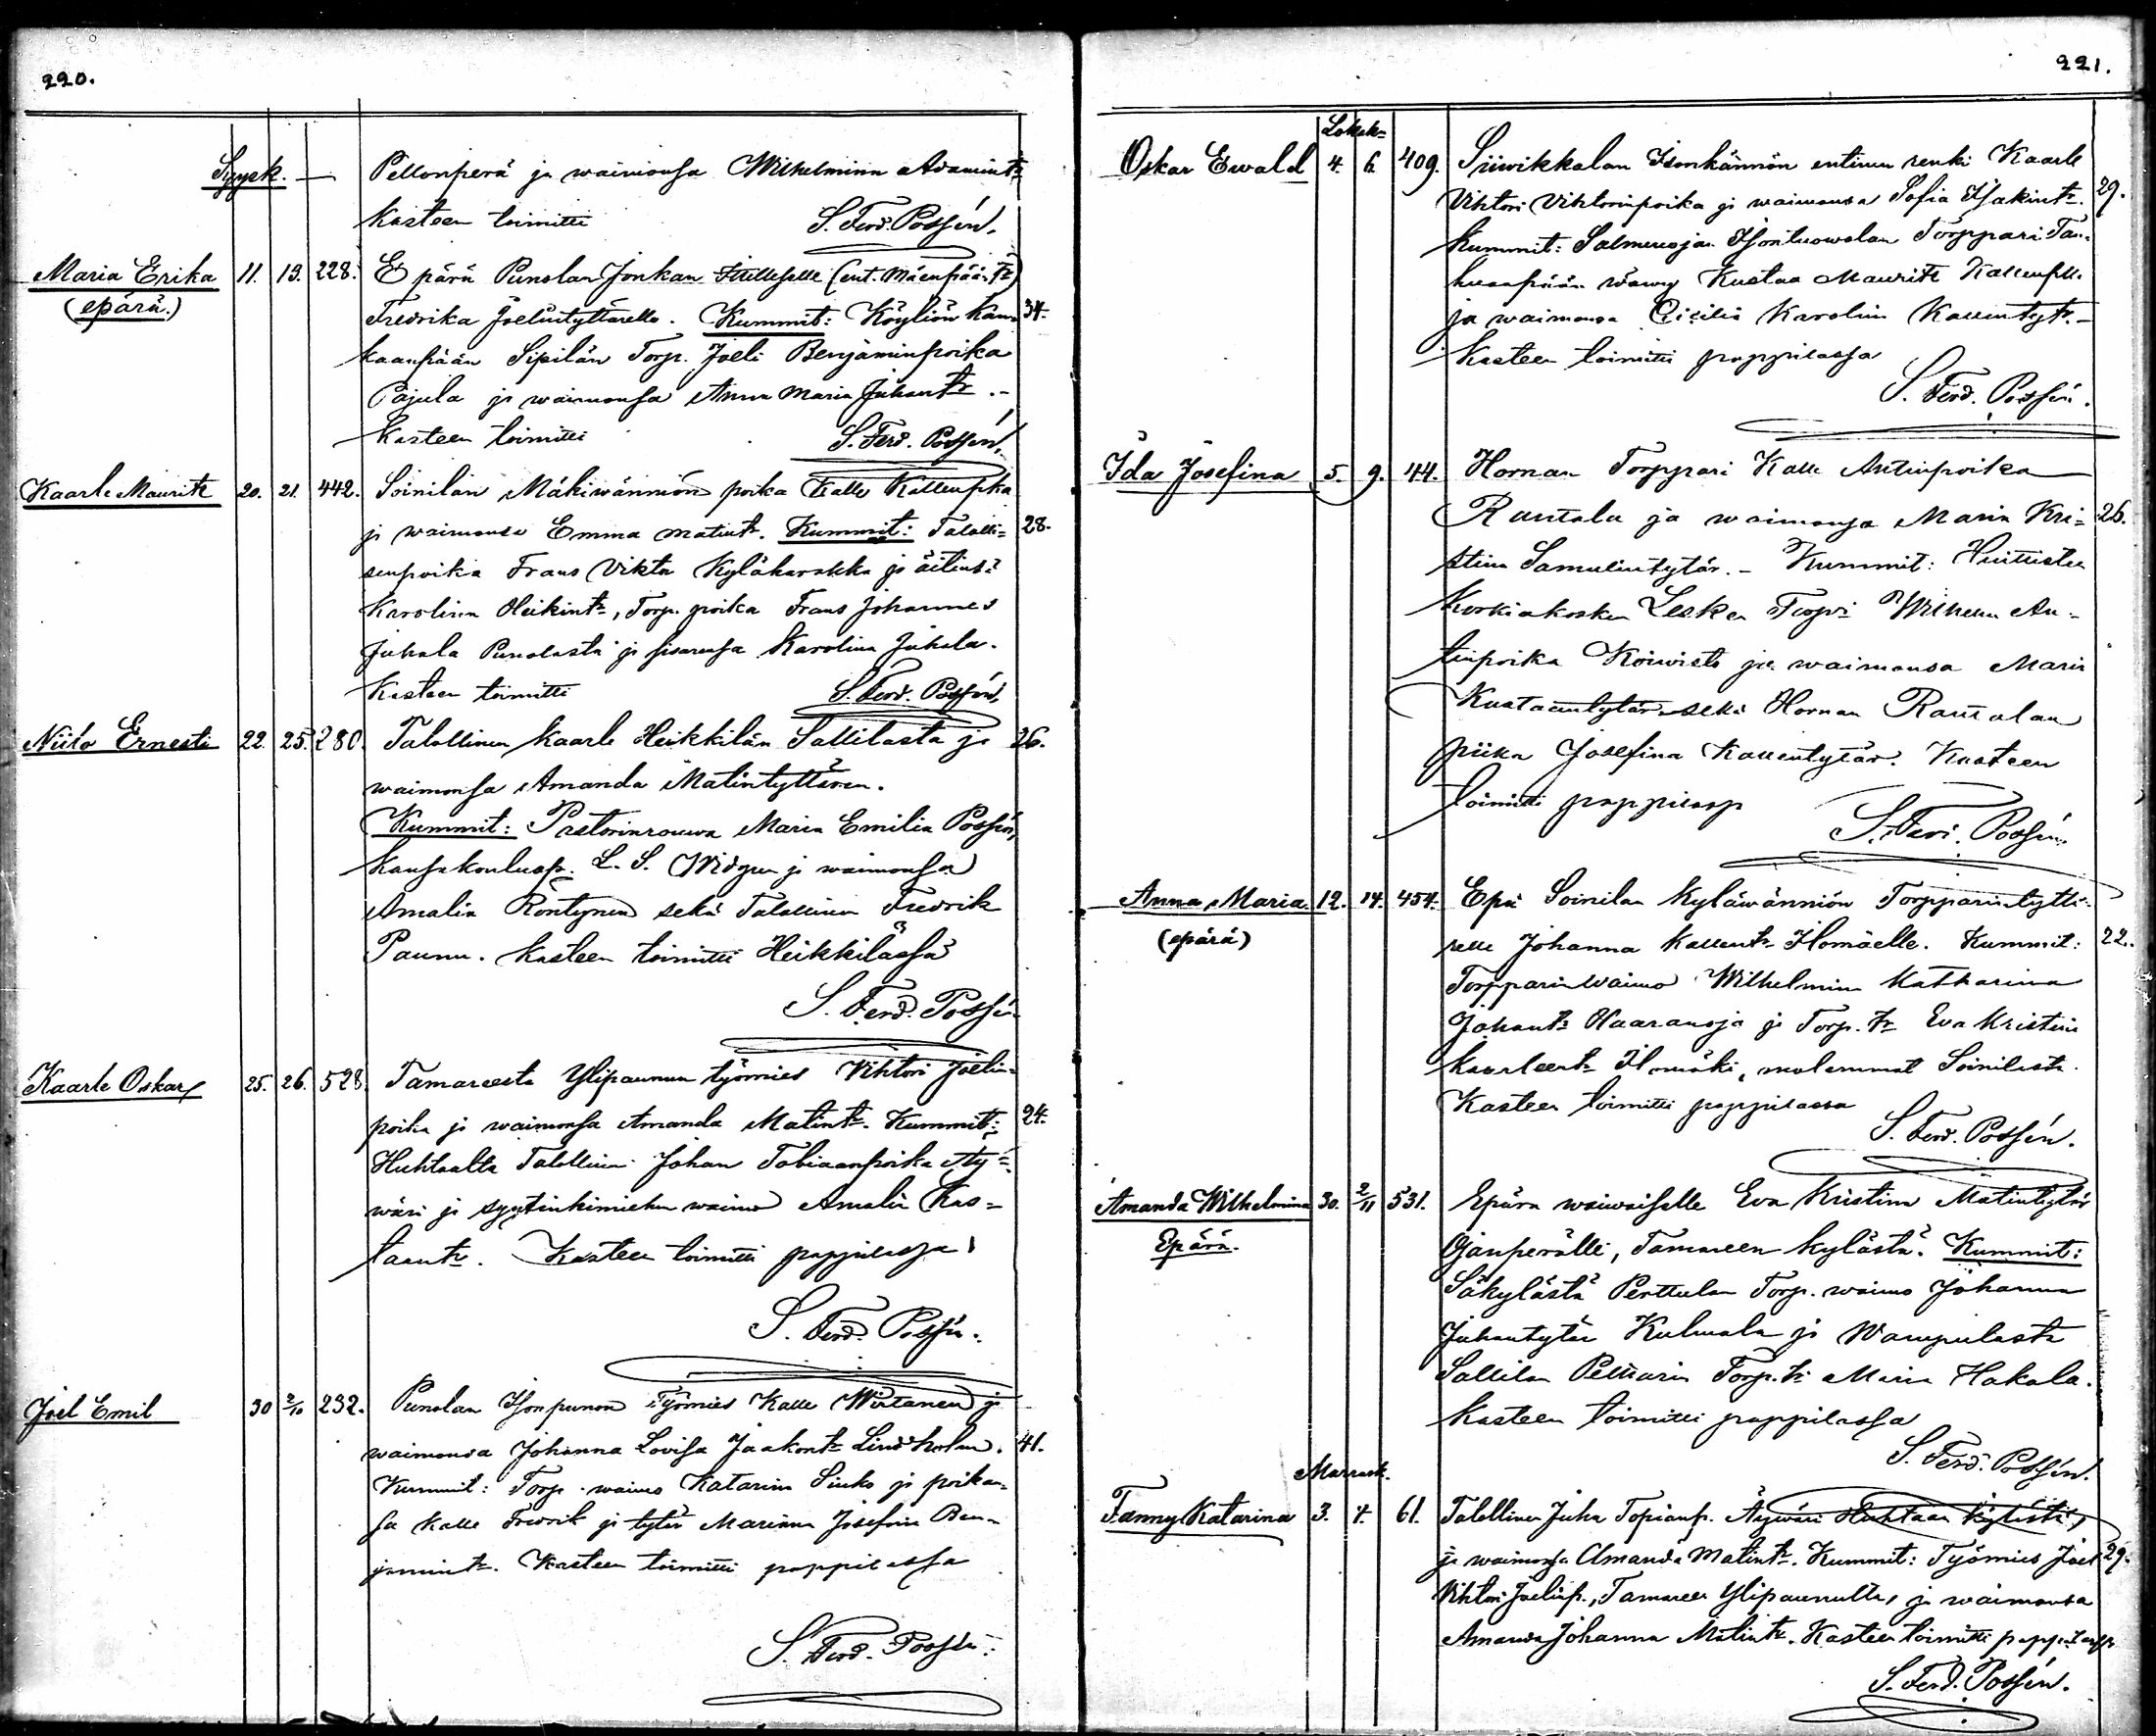 220.
Syysk. — Pellonperä ja waimonsa Wilhelmina Adamintr
Kasteen toimitti S. Ferd. Possén.
Maria Erika 11. 19. 228. Epärä Punolan Jonkan (ent. Mäenpään tr)
(epärä.) Fredrika Joelintyttärelle. Kummit: Köyliön Kan= 34.
kaanpään Sipilän Torp. Joeli Benjaminpoika
Pajula ja waimonsa Anna Maria Juhantr. –
Kasteen toimitti S. Ferd. Possén.
Kaarle Maurits 20. 21. 442. Soinilan Mäkiwänniön poika Kalle Kallenpka
ja waimonsa Emma Matintr. Kummit: Talolli= 28.
senpoika Frans Viktor Kyläkarakka ja äitinsä
Karolina Heikintr, Torp. poika Frans Johannes
Juhala Punolasta ja sisarensa Karolina Juhala.
Kasteen toimitti S. Ferd. Possén.
Niilo Ernesti 22. 25. 280. Talollinen Kaarle Heikkilän Sallilasta ja 26.
waimonsa Amanda Matintyttären.
Kummit: Pastorinrouwa Maria Emilia Possén,
Kansakouluop. L. S. Widgren ja waimonsa
Amalia Röntynen sekä Talollinen Fredrik
Paunu. Kasteen toimitti Heikkilässä
S. Ferd. Possén
Kaarle Oskar 25. 26. 528. Tamareesta Ylipaunun työmies Vihtori Joelin=
poika ja waimonsa Amanda Matintr. Kummit: 24.
Huhtaalta Talollinen Johan Tobiaanpoika Äy=
wäri ja syytinkimiehen waimo Amalia Kus=
taantr. Kasteen toimitti pappilassa
S. Ferd. Possén.
Joel Emil 30 2/10 232. Punolan Isonpunon Työmies Kalle Wirtanen ja
waimonsa Johanna Lovisa Jaakontr Lindholm. 41.
Kummit: Torp. waimo Katarina Sinko ja poikan=
sa Kalle Fredrik ja tytär Marianna Josefina Ben=
jamintr. Kasteen toimitti pappilassa
S. Ferd. Possén.
221.
Lokak=
Oskar Ewald 4. 6. 409. Siiwikkalan Isonkännön entinen renki Kaarle
Vihtori Vihtorinpoika ja waimonsa Sofia Isakintr. 29.
Kummit: Salmenojan Torppari Tan=
huanpään wäwy Kustaa Maurits Kallenp.
ja waimonsa Cicilia Karolina Kallentytr. –
Kasteen toimitti pappilassa
S. Ferd. Possén.
Ida Josefina 5. 9. 44. Hornan Torppari Kalle Antinpoika
Rautala ja waimonsa Maria Kri= 26.
stina Samulintytär. – Kummit: Huittisten
Korkiakosken Torpri Wilhelm An=
tinpoika Koiwisto ja waimonsa Maria
Kustaantytär, sekä Hornan Rautalan
piika Josefina Kallentytär. Kasteen
toimitti pappilassa
S. Ferd. Possén.
Anna Maria. 12. 14. 454. Epä Soinilan Kyläwänniön Torpparintyttä=
(epärä) relle Johanna Kallentr Ilomäelle. Kummit: 22.
Torpparinwaimo Wilhelmina Katharina
Johantr Haaranoja ja Torp. tr Eva Kristina
Kaarleentr Ilomäki, molemmat Soinilasta.
Kasteen toimitti pappilassa
S. Ferd. Possén.
Amanda Wilhelmina 30. 2/11 531. Epära waiwaiselle Eva Kristina Matintytär
Epärä. Ojanperälle, Tamareen kylästä. Kummit:
Säkylästä Perttulan Torp. waimo Johanna
Juhantytär Kulmala ja Wampulasta
Sallilan Torp. tr Maria Hakala.
Kasteen toimitti pappilassa
S. Ferd. Possén.
Marrask.
Fanny Katarina 3. 4. 61. Talollinen Juha Topianp. Äywäri Huhtaan kylästä,
ja waimonsa Amanda Matintr. Kummit: Työmies Joel 29.
Vihtori Joelinp., Tamareen Ylipaunulta, ja waimonsa
Amanda Johanna Matintr. Kasteen toimitti pappilassa
S. Ferd. Possén.